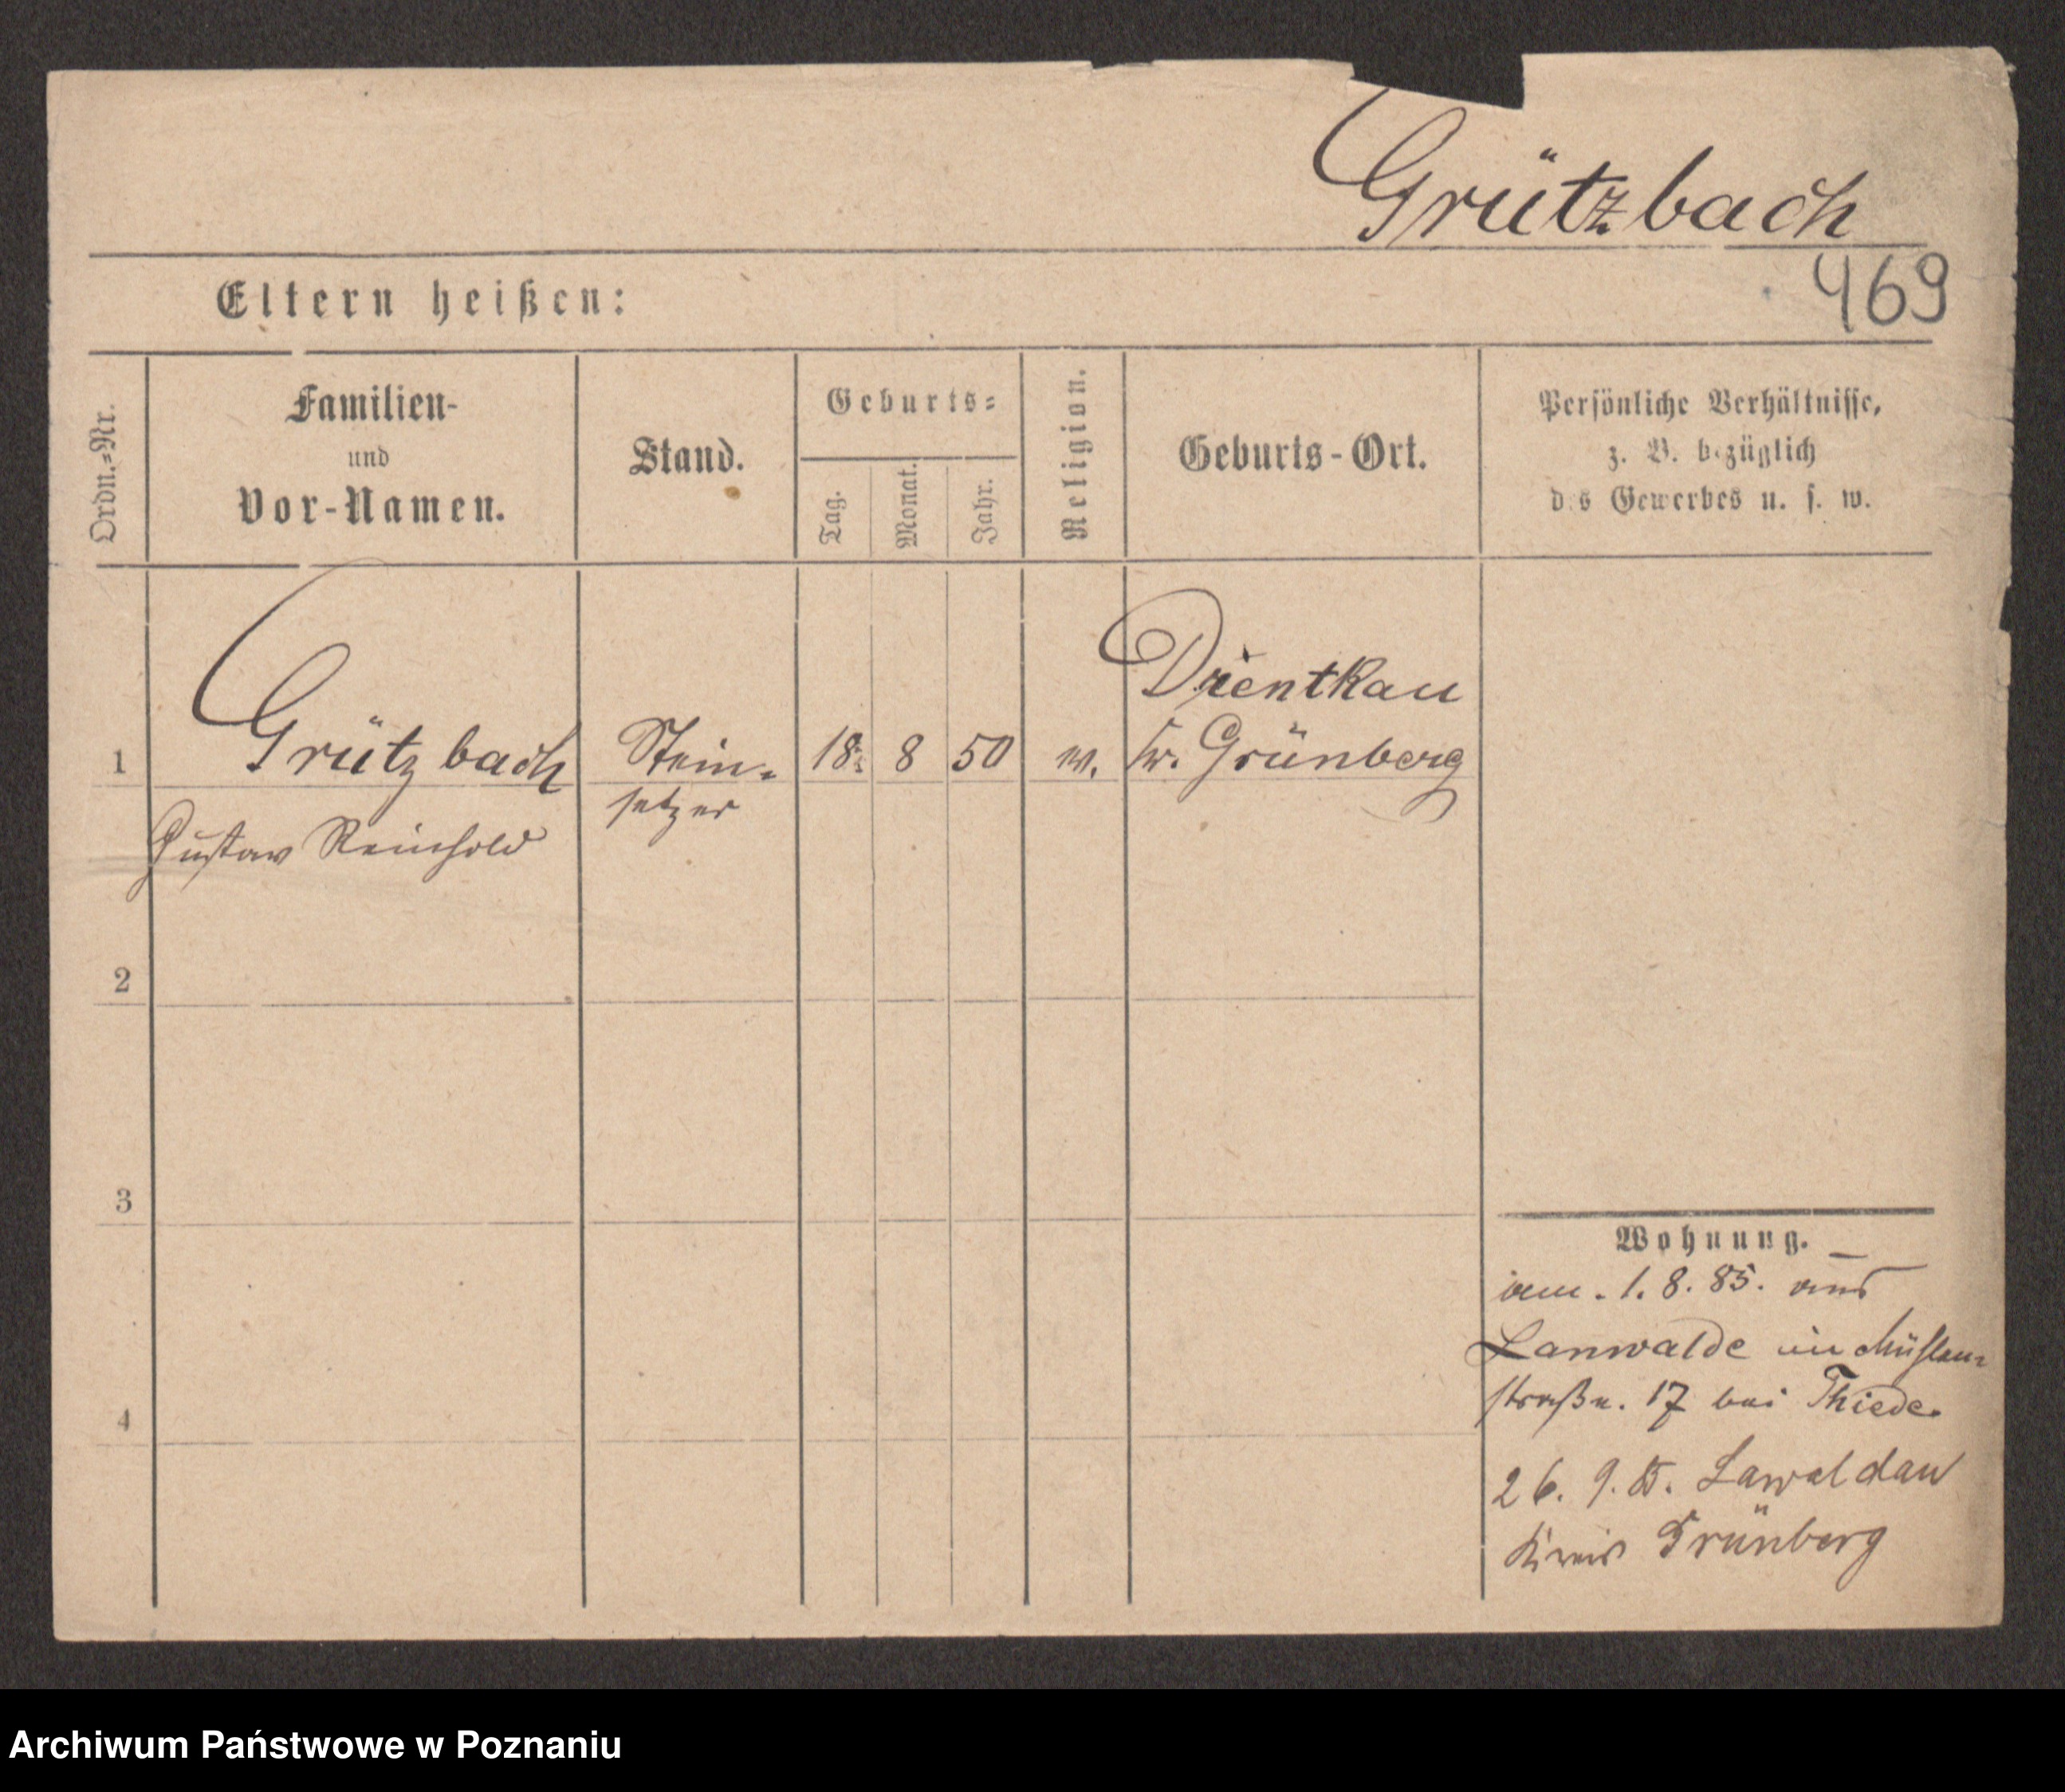 Grützbach
469
Eltern heißen:
Ordn.=Nr.
Familien-
und
Vor-Namen.
Stand.
Geburts=
Tag.
Monat.
Jahr.
Religion.
Geburts-Ort.
Persönliche Verhältnisse,
z. B. bezüglich
des Gewerbes u. s. w.
Drentkau
1 Grützbach Stein- 18. 8 50 Kr. Grünberg
setzer
Gustav Reinhold
2
3
Wohnung.
1. 8. 85. aus
Lanwalde in Mühlen-
straße. 17 bei Thiede.
4
26. 9. 85. Lawaldau
Kreis Grünberg
Archiwum Państwowe w Poznaniu